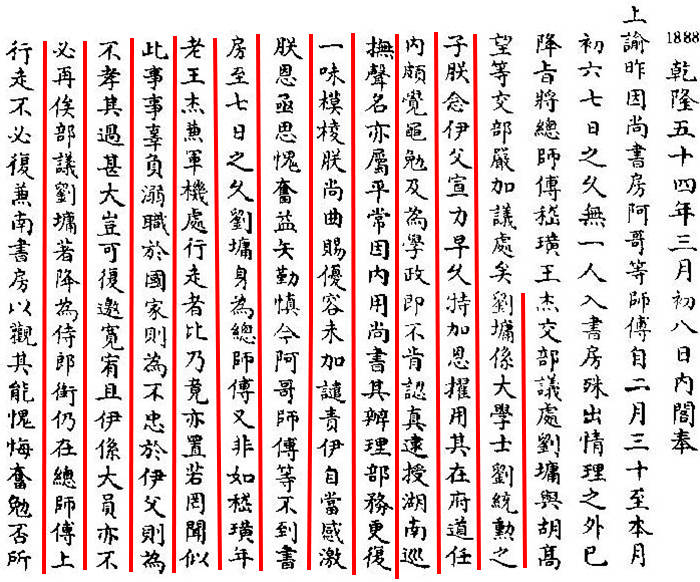 1888 乾隆五十四年三月初八日内閣奉
上諭昨因尚書房阿哥等師傅自二月三十至本月
初六七日之久無一人入書房殊出情理之外已
降旨將總師傅嵇璜王杰交部議處劉墉與胡高
望等交部嚴加議處矣劉墉係大學士劉統勲之
子朕念伊父宣力早久特加恩擢用其在府道任
内頗覺黽勉及為學政即不肯認真逮授湖南巡
撫聲名亦屬平常因内用尚書其辦理部務更復
一味模棱朕尚曲賜優容未加譴責伊自當感激
朕恩亟思愧奮益矢勤慎今阿哥師傅等不到書
房至七日之久劉墉身為總師傅又非如嵇璜年
老王杰兼軍機處行走者比乃竟亦置若罔聞似
此事事辜負溺職於國家則為不忠於伊父則為
不孝其過甚大豈可復邀寬宥且伊係大員亦不
必再俟部議劉墉著降為侍郎銜仍在總師傅上
行走不必復兼南書房以觀其能愧悔奮勉否所